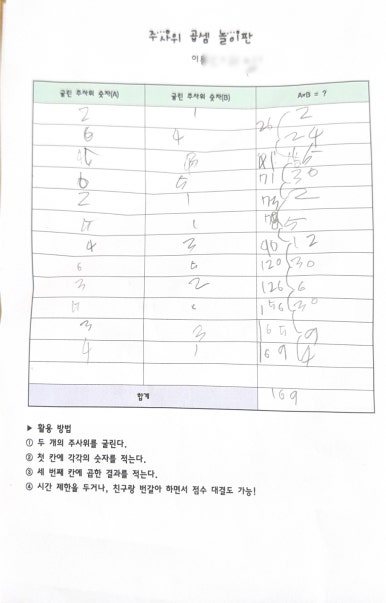 주사위 곱셈 놀이판
이름
굴린 주사위 숫자(A) 굴린 주사위 숫자(B) A×B = ?
2 1 2
6 4 26 24
81
6 5 71 30
2 1 73 2
5 1 5
4 3 90 12
6 5 120 30
3 2 126 6
5 156 30
3 3 165 9
4 1 169 4
합계 169
▶ 활용 방법
① 두 개의 주사위를 굴린다.
② 첫 칸에 각각의 숫자를 적는다.
③ 세 번째 칸에 곱한 결과를 적는다.
④ 시간 제한을 두거나, 친구랑 번갈아 하면서 점수 대결도 가능!